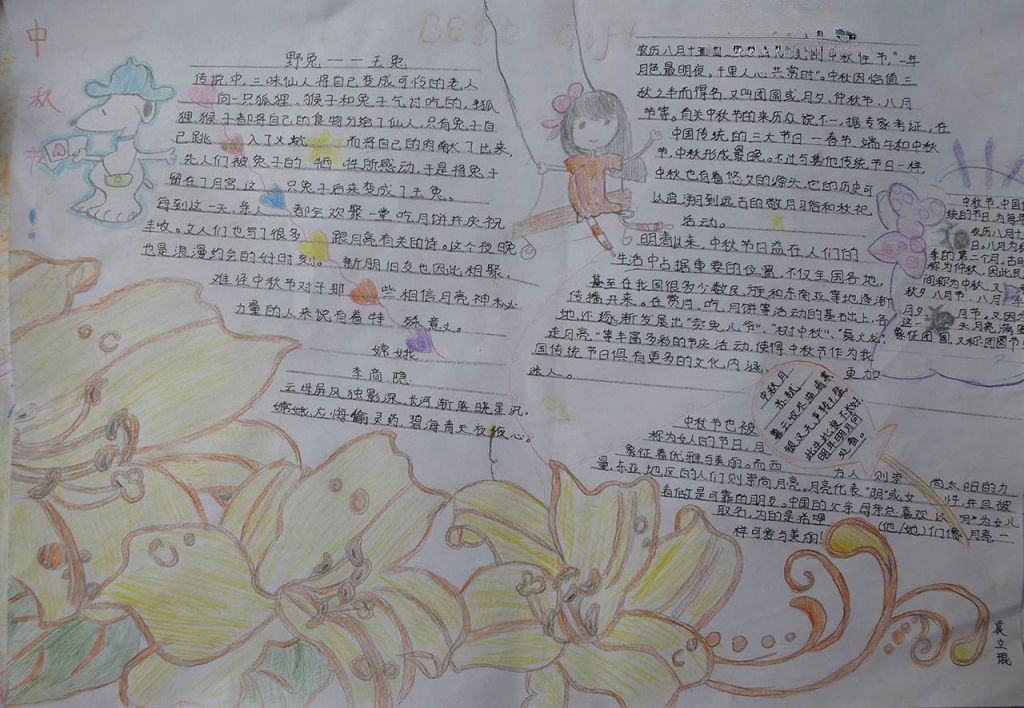 中
秋
!
Best gift
野兔——玉兔
传说中,三味仙人将自己变成可怜的老人
向一只狐狸、猴子和兔子乞讨吃的,狐
狸、猴子都将自己的食物分给了仙人,只有兔子自
己跳入了火 而将自己的肉献了出来,
先人们被兔子的牺牲所感动,于是将兔子
留在了月宫,这只兔子后来变成了玉兔。
每到这一天,亲人都会欢聚一堂吃月饼并庆祝
丰收。文人们也写了很多跟月亮有关的诗。这个夜晚
也是浪漫约会的好时刻。新朋旧友也因此相聚,
难怪中秋节对于那些相信月亮神秘
力量的人来说有着特殊意义。
嫦娥
李商隐
云母屏风独影深,长河渐落晓星沉。
嫦娥应悔偷灵药,碧海青天夜夜心。
农历八月十 中秋佳节,“一年
月色最明夜,千里人心共赏时”。中秋因恰值三
秋之半而得名,又叫团圆或月夕、仲秋节、八月
节等。有关中秋节的来历众说不一,据专家考证,在
中国传统的三大节日—春节、端午和中秋
节,中秋形成最晚。不过与其他传统节日一样
中秋也有着悠久的源头,它的历史可
以追溯到远古的敬月习俗和秋祀
活动。
明清以来,中秋节日益在人们的
生活中占据重要的位置,不仅全国各地,
甚至在我国很多少数民族和东南亚等地逐渐
传播开来。在赏月、吃月饼等活动的基础上,各
地还逐渐发展出“卖兔儿爷”、“树中秋”、“舞火龙”、
“走月亮”等丰富多彩的节庆活动,使得中秋节作为我
国传统节日俱有更多的文化内涵, 更加
迷人。
中秋节,中国
统的节日,为每年
农历八月十
日。八月为秋
季的第二个月,古时
称为仲秋,因此民
间称为中秋,又
秋夕、八月节、八月
月夕、月节,又因为
这一天月亮满圆
象征团圆,又称:团圆节
中秋月
苏轼
暮云收尽溢清寒
银汉无声转玉盘
此生此夜不长好,
明年明月何
处看。
中秋节也被
称为女人的节日,月
象征着优雅与美丽。而西方人则崇尚太阳的力
量,东亚地区的人们则崇尚月亮。月亮代表“阴”或女性,并且被
看做是可靠的朋友。中国的父亲母亲总喜欢以“月”为女儿
取名,为的是希望 (他/她)们像月亮一
样可爱与美丽!
袁立琨